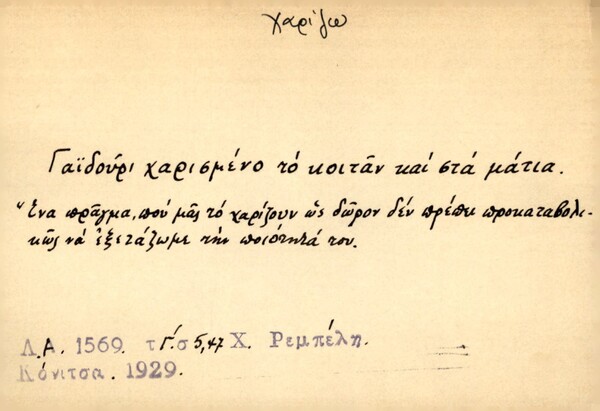 χαρίζω
Γαϊδούρι χαρισμένο τό κοιτᾶν καί στά μάτια.
Ἕνα πρᾶγμα, πού μᾶς τό χαρίζουν ὡς δῶρον δέν πρέπει προκαταβολι-
κῶς νά ἐξετάζωμε τήν ποιότητά του.
Λ.Α. 1569. τ Γ΄. σ 5,47 Χ. Ρεμπέλη.
Κόνιτσα. 1929.